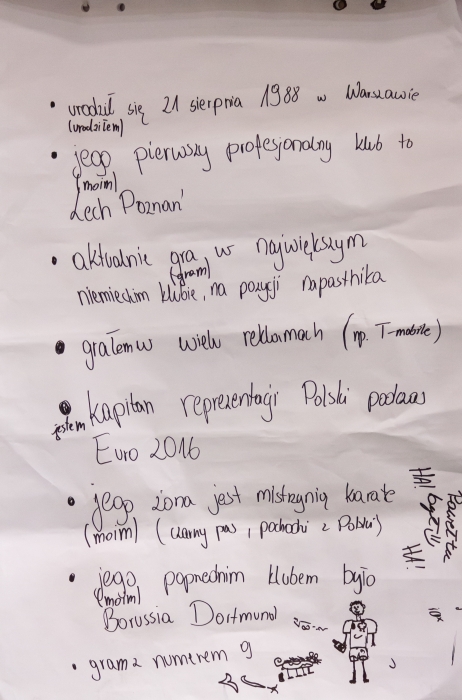 • urodził się 21 sierpnia 1988 w Warszawie
(urodziłem)
• jego pierwszy profesjonalny klub to
(moim)
Lech Poznań
• aktualnie gra w największym
(gram)
niemieckim klubie, na pozycji napastnika
• grałem w wielu reklamach (np. T-mobile)
• kapitan reprezentacji Polski podczas
jestem
Euro 2016
• jego żona jest mistrzynią karate
(moim) (czarny pas i pochodzi z Polski)
• jego poprzednim klubem było
(moim)
Borussia Dortmund
• gram z numerem 9
HA!
HA!